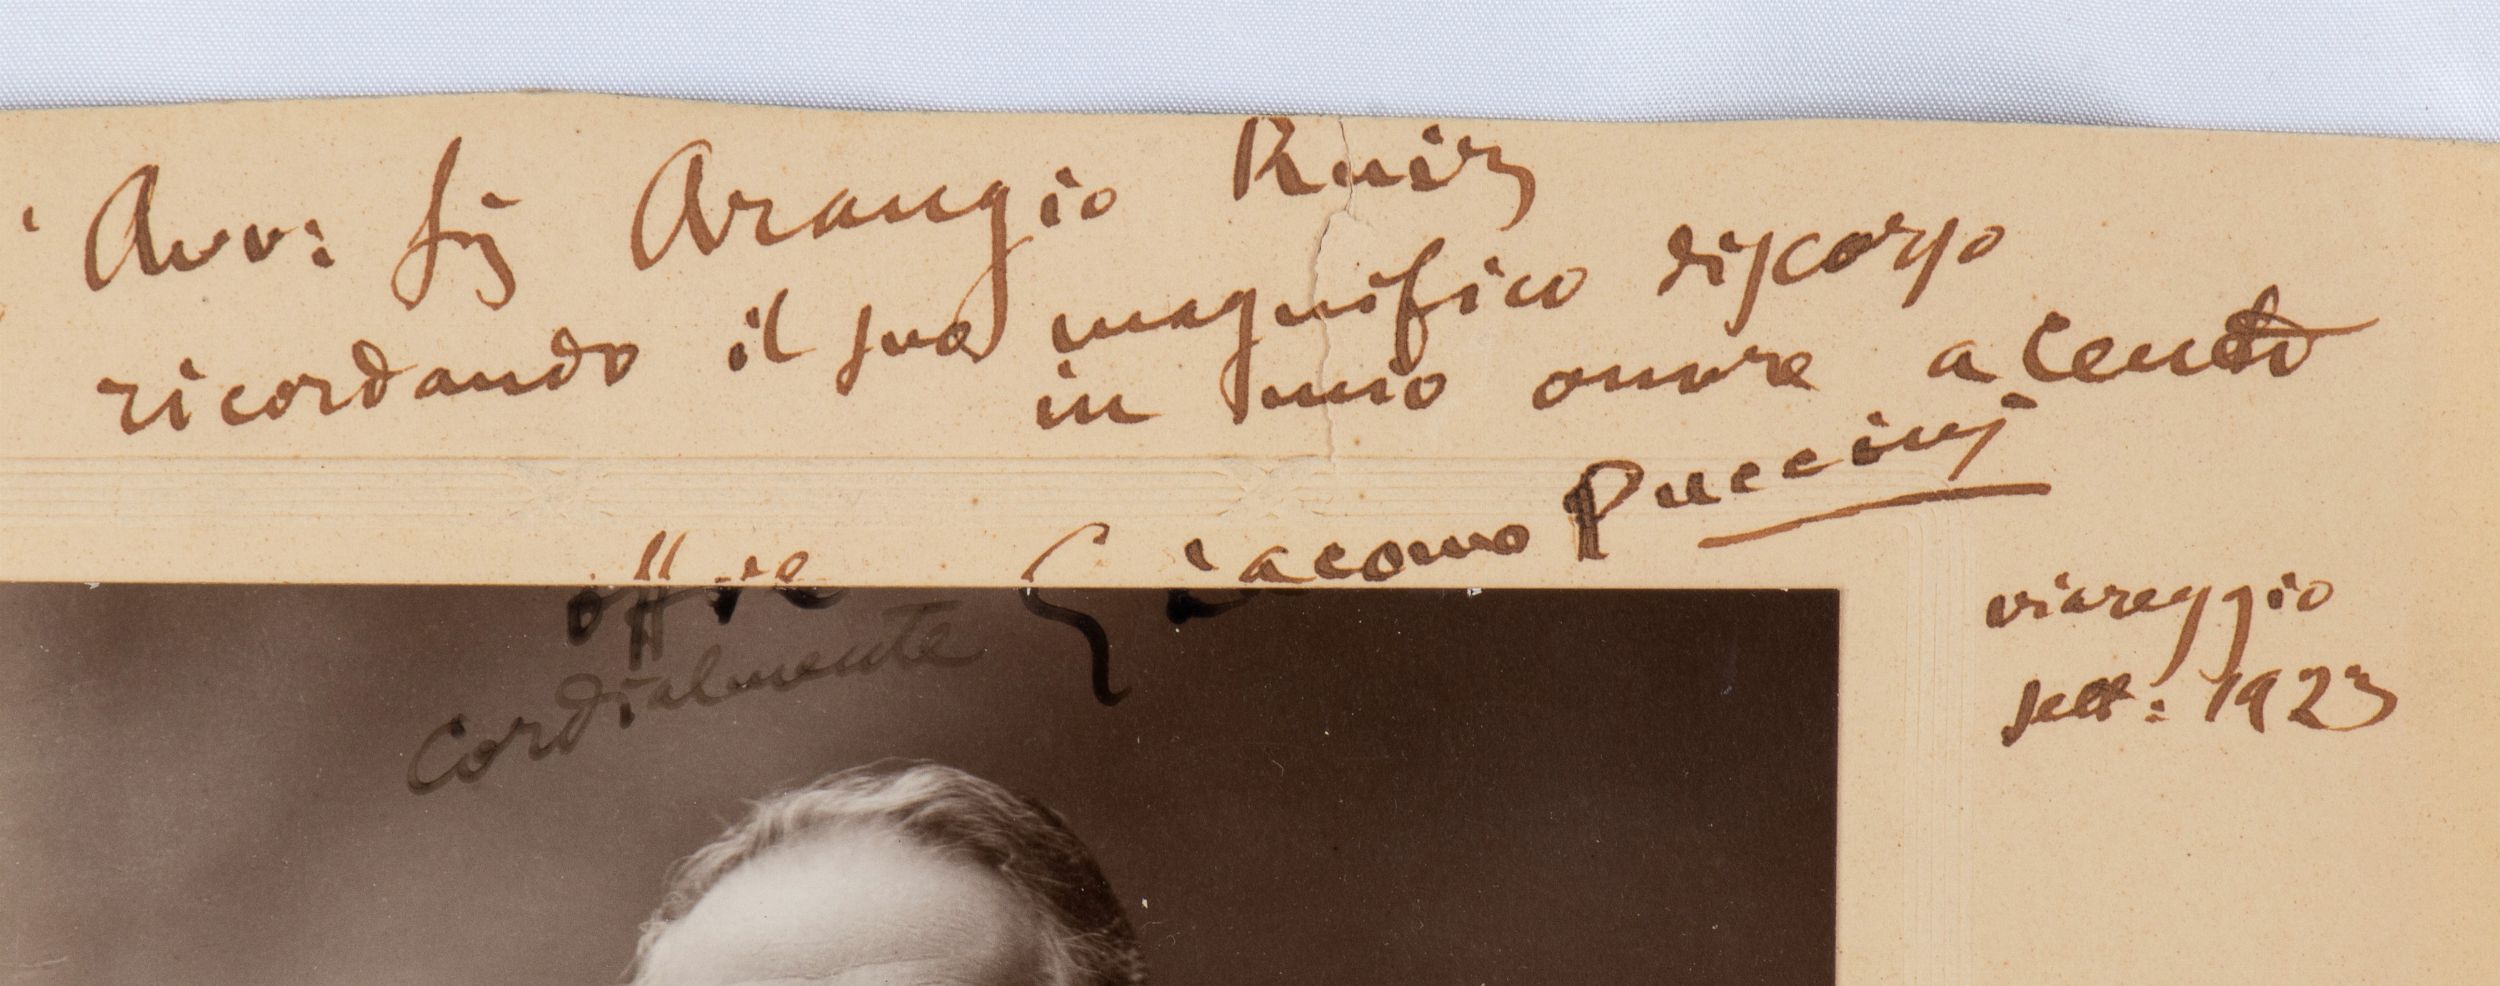 Avv: Sig Arangio Ruiz
ricordando il suo magnifico discorso
in mio onore a Cento
offre Giacomo Puccini
cordialmente
viareggio
sett: 1923